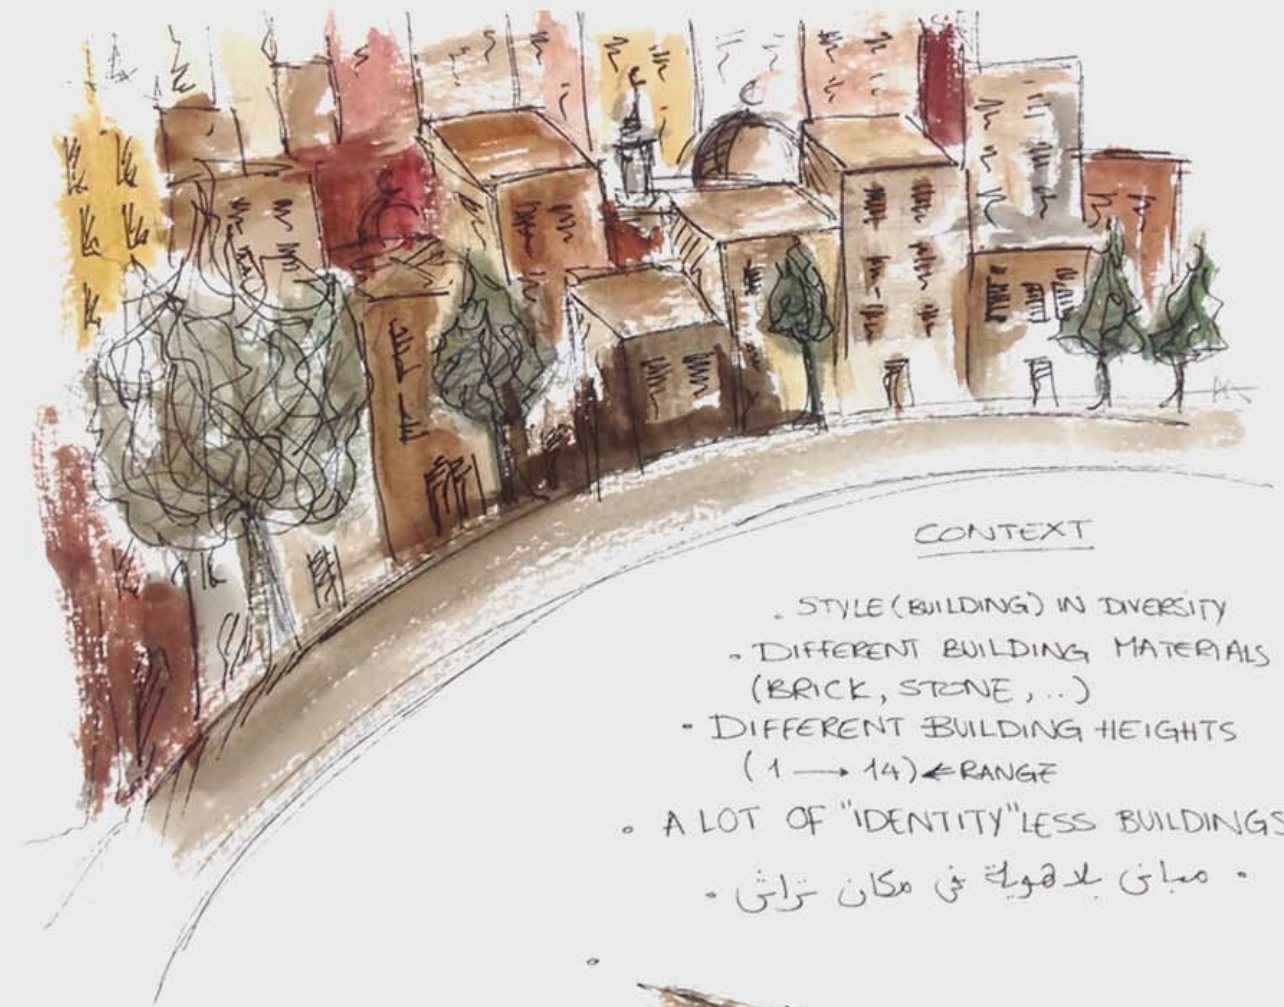 CONTEXT
. STYLE (BUILDING) IN DIVERSITY
. DIFFERENT BUILDING MATERIALS
(BRICK, STONE, ..)
. DIFFERENT BUILDING HEIGHTS
(1 → 14) ← RANGE
. A LOT OF "IDENTITY"LESS BUILDINGS
. مبانى بلا هوية فى مكان تراثى .